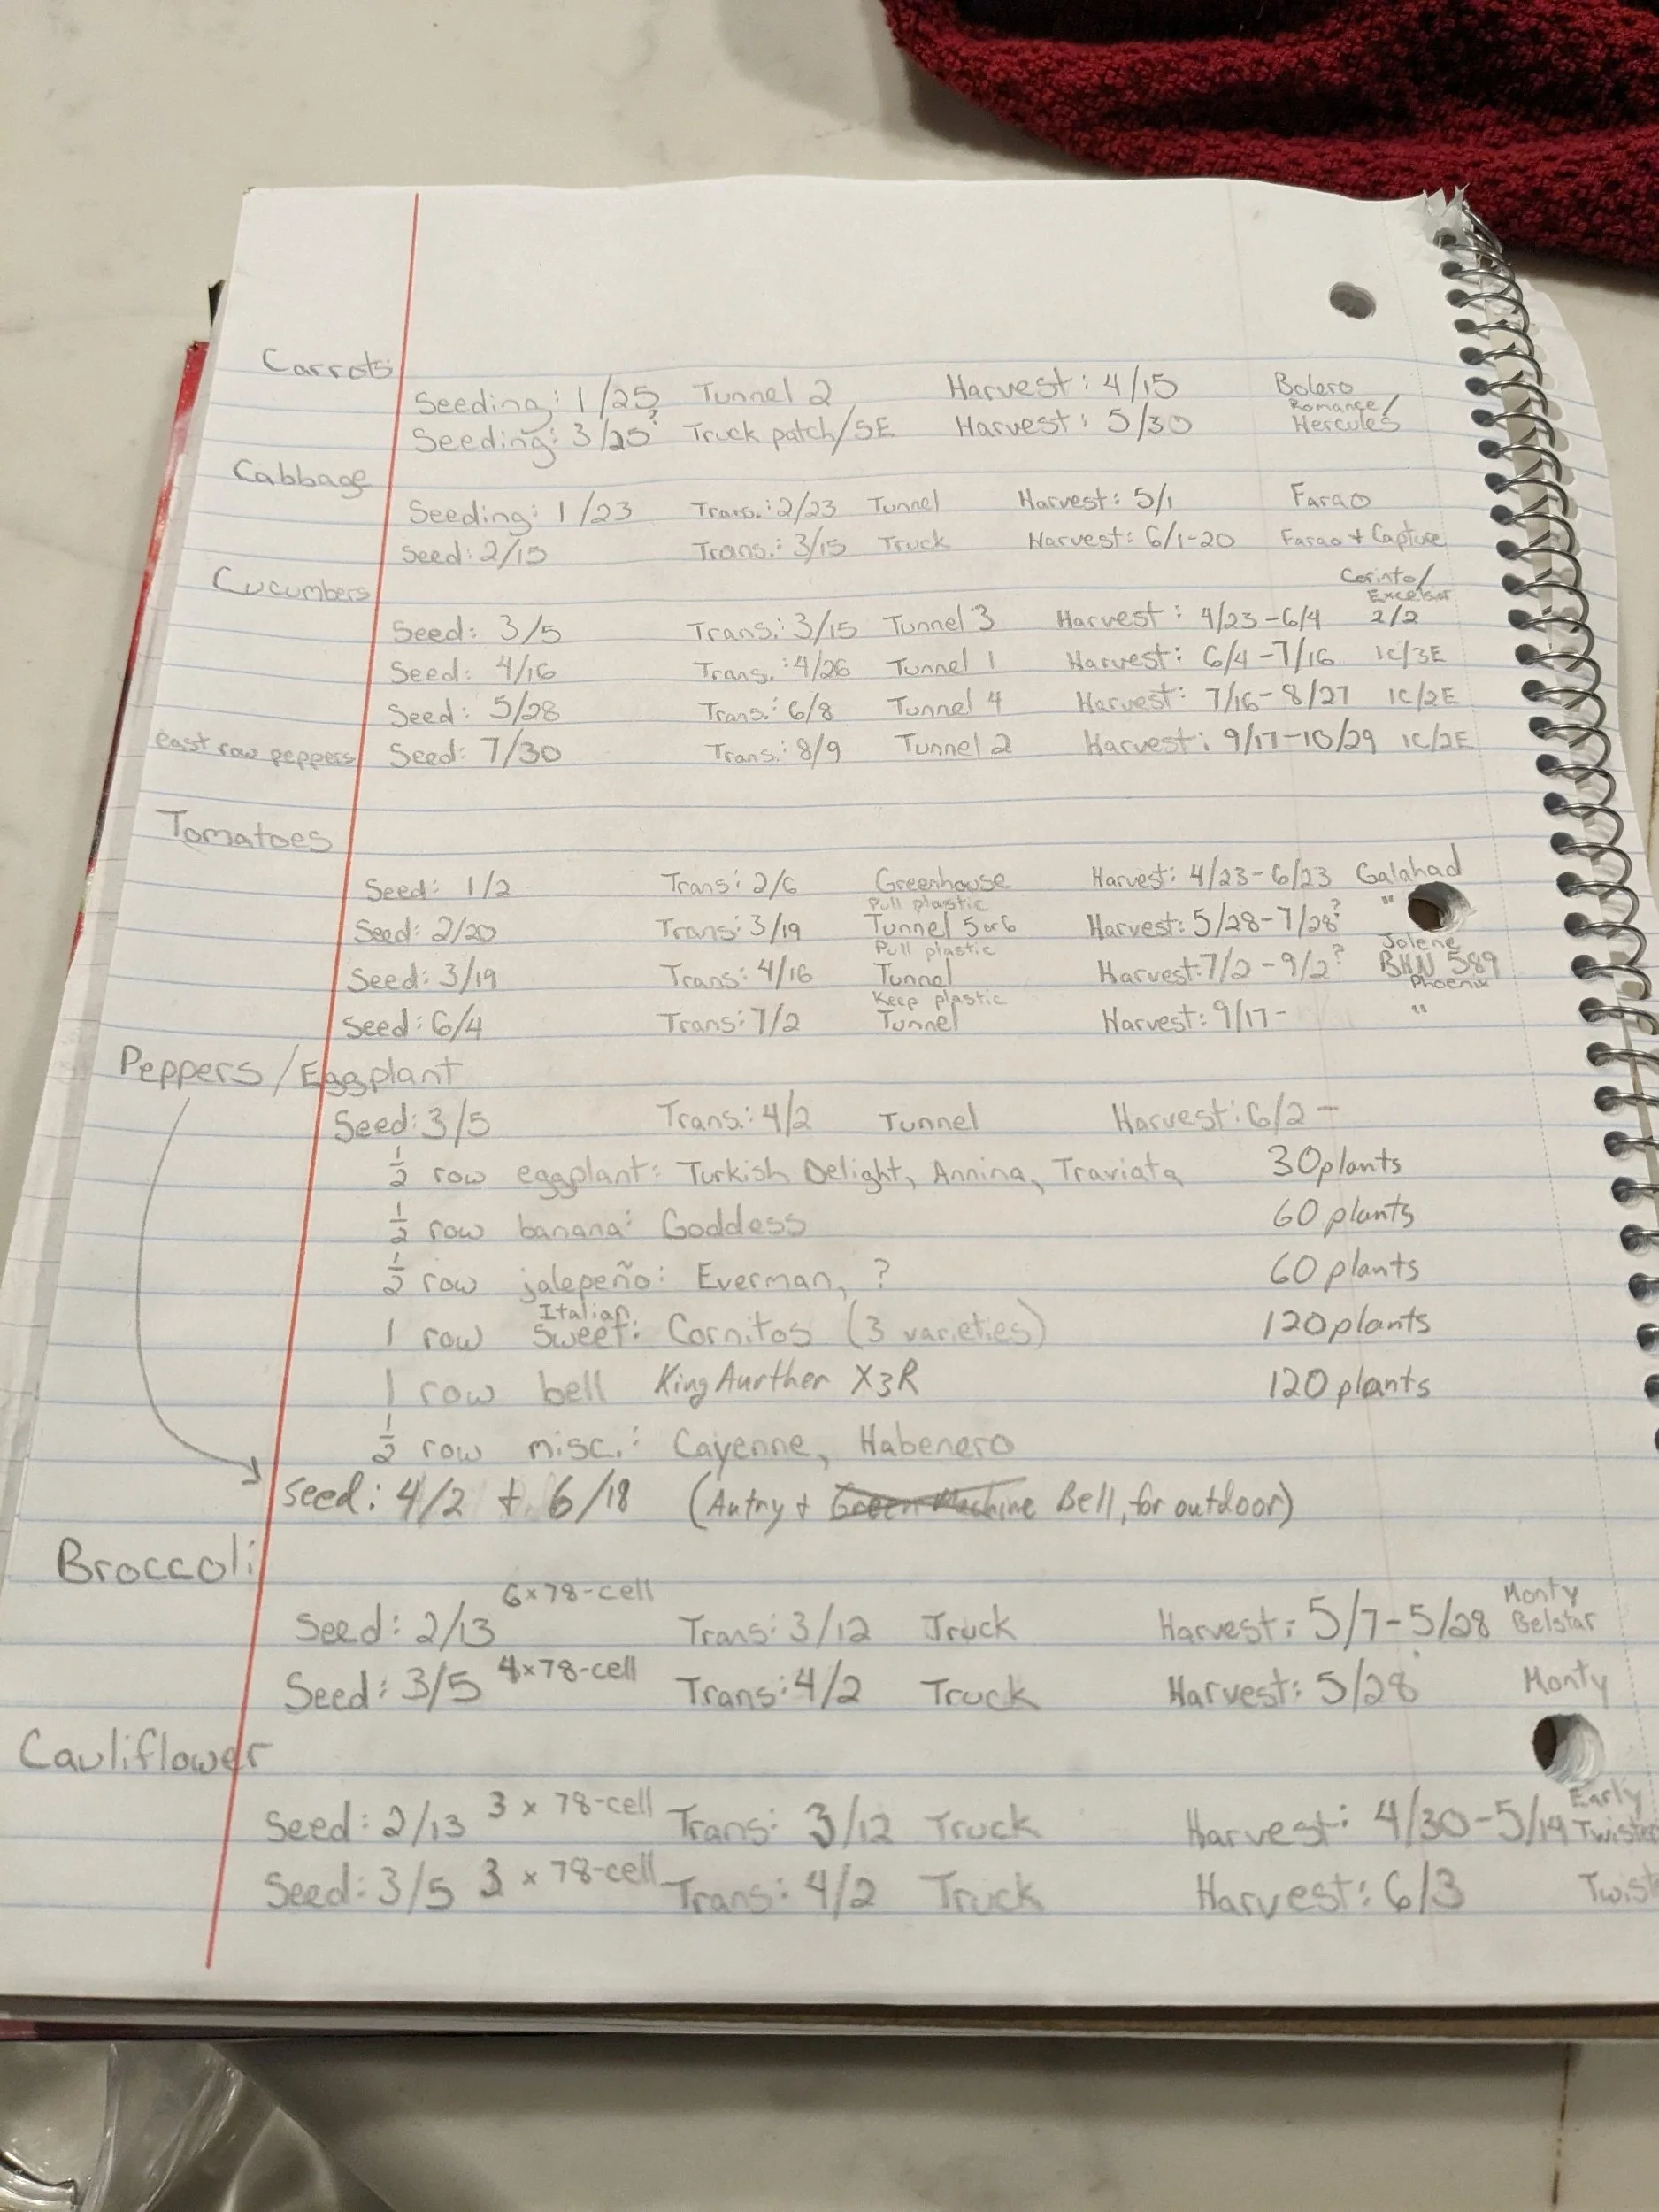 Carrots
Seeding: 1/25 Tunnel 2 Harvest: 4/15 Bolero
Seeding: 3/25? Truck patch/SE Harvest: 5/30 Romance/ Hercules
Cabbage
Seeding: 1/23 Trans.: 2/23 Tunnel Harvest: 5/1 Farao
Seed: 2/15 Trans.: 3/15 Truck Harvest: 6/1-20 Farao + Capture
Cucumbers Corinto/ Excelsior
Seed: 3/5 Trans.: 3/15 Tunnel 3 Harvest: 4/23-6/4 2/2
Seed: 4/16 Trans.: 4/26 Tunnel 1 Harvest: 6/4-7/16 1C/3E
Seed: 5/28 Trans.: 6/8 Tunnel 4 Harvest: 7/16-8/27 1C/2E
east row peppers Seed: 7/30 Trans.: 8/9 Tunnel 2 Harvest: 9/17-10/29 1C/2E
Tomatoes
Seed: 1/2 Trans: 2/6 Greenhouse Harvest: 4/23-6/23 Galahad
Pull plastic
Seed: 2/20 Trans: 3/19 Tunnel 5 or 6 Harvest: 5/28-7/28? "
Pull plastic Jolene
Seed: 3/19 Trans: 4/16 Tunnel Harvest: 7/2-9/2? BHN 589
Keep plastic Phoenix
Seed: 6/4 Trans: 7/2 Tunnel Harvest: 9/17- "
Peppers/Eggplant
Seed: 3/5 Trans.: 4/2 Tunnel Harvest: 6/2-
1/2 row eggplant: Turkish Delight, Annina, Traviata 30 plants
1/2 row banana: Goddess 60 plants
1/2 row jalepeño: Everman, ? 60 plants
Italian
1 row sweet: Cornitos (3 varieties) 120 plants
1 row bell King Aurther X3R 120 plants
1/2 row misc.: Cayenne, Habenero
seed: 4/2 + 6/18 (Autry + Green Machine Bell, for outdoor)
Broccoli
Seed: 2/13 6x78-cell Trans: 3/12 Truck Harvest: 5/7-5/28 Monty Belstar
Seed: 3/5 4x78-cell Trans: 4/2 Truck Harvest: 5/28 Monty
Cauliflower
Seed: 2/13 3 x 78-cell Trans: 3/12 Truck Harvest: 4/30-5/14 Early Twister
Seed: 3/5 3 x 78-cell Trans: 4/2 Truck Harvest: 6/3 Twist